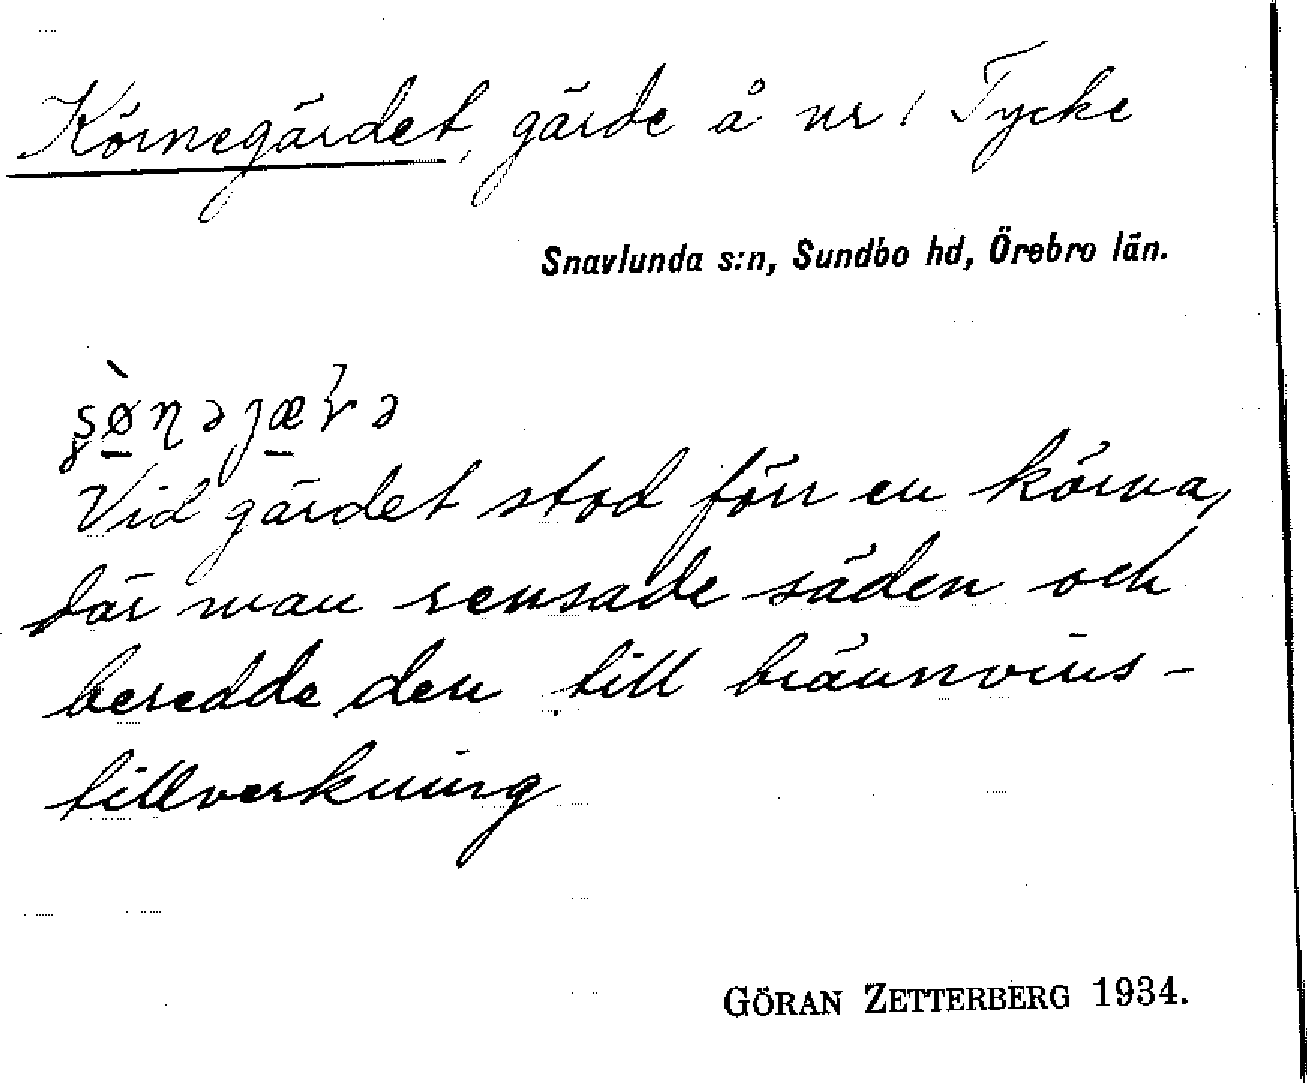 Körnegärdet, gärde å nr 1 Tycke
Snavlunda s:n, Sundbo hd, Örebro län.
Vid gärdet stod förr en körna,
där man rensade säden och
beredde den till brännvins-
tillverkning
GÖRAN ZETTERBERG 1934.